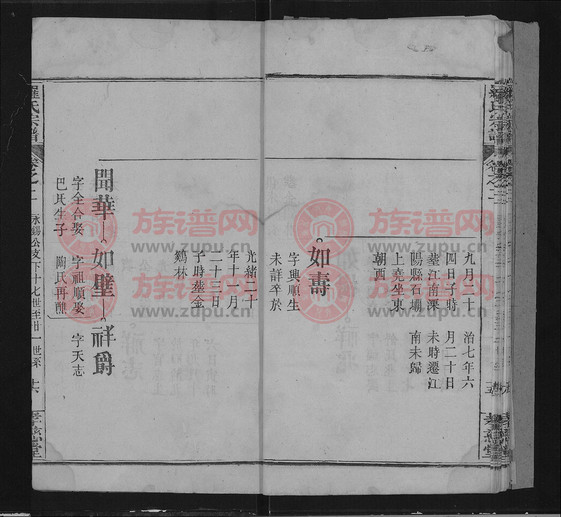 九月二十
四日子時
塟江南溧
陽縣石壩
上堯坐東
朝酉
治七年六
月二十日
未時遷江
南未歸
如壽
字興順生
未詳卒於
光緒二十
年十一月
二十三日
子時塟金
鷄林
聞華 如璧 祥爵
字全合娶
巴氏生子
字祖順娶
陶氏再醮
字天志
羅氏宗譜
卷之
永錫公支下十七世至廿一世系
孝慈堂
族谱网
www.zupu.cn